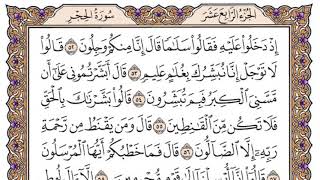 الجزء الرابع عشر
سورة الحجر
إِذْ دَخَلُوا۟ عَلَيْهِ فَقَالُوا۟ سَلَٰمًا قَالَ إِنَّا مِنكُمْ وَجِلُونَ ٥٢ قَالُوا۟
لَا تَوْجَلْ إِنَّا نُبَشِّرُكَ بِغُلَٰمٍ عَلِيمٍ ٥٣ قَالَ أَبَشَّرْتُمُونِى عَلَىٰٓ أَن
مَّسَّنِىَ ٱلْكِبَرُ فَبِمَ تُبَشِّرُونَ ٥٤ قَالُوا۟ بَشَّرْنَٰكَ بِٱلْحَقِّ
فَلَا تَكُن مِّنَ ٱلْقَٰنِطِينَ ٥٥ قَالَ وَمَن يَقْنَطُ مِن رَّحْمَةِ
رَبِّهِۦٓ إِلَّا ٱلضَّآلُّونَ ٥٦ قَالَ فَمَا خَطْبُكُمْ أَيُّهَا ٱلْمُرْسَلُونَ